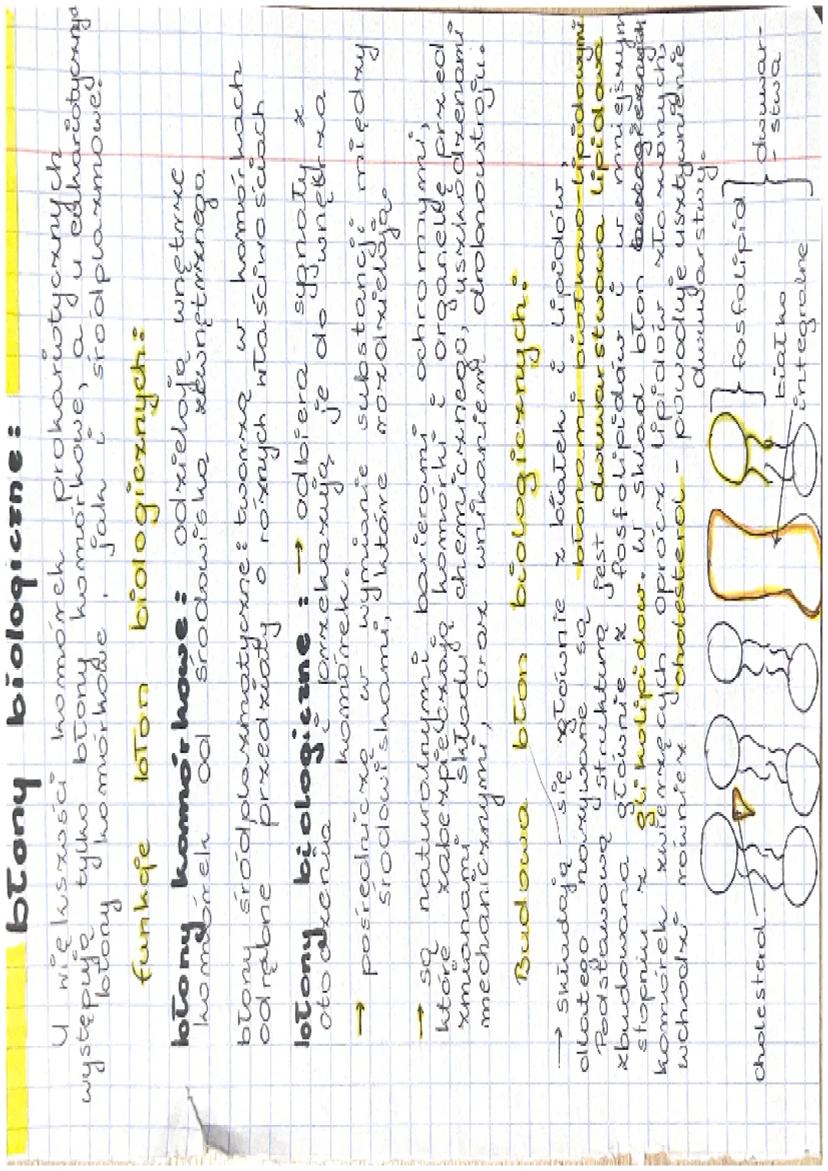 błony biologiczne:
U większości komórek prokariotycznych
występują tylko błony komórkowe, a u eukariotycznych
błony komórkowe, jak i śródplazmowe.
funkcje błon biologicznych:
błony komórkowe: odzielają wnętrze
komórek od środowiska zewnętrznego.
błony śródplazmatyczne: tworzą w komórkach
odrębne przedziały o różnych właściwościach
błony biologiczne: → odbiera sygnały z
otoczenia i przekazują je do wnętrza
komórek.
→ pośrednicza w wymianie substancji między
środowiskami, które rozdzielają.
→ są naturalnymi barierami ochronnymi,
które zabezpieczają komórki i organelle przed
zmianami składu chemicznego, uszkodzeniami
mechanicznymi, oraz wnikaniem drobnoustrojów.
Budowa błon biologicznych:
→ składają się głównie z białek i lipidów
dlatego nazywane są błonami białkowo-lipidowymi
Podstawową strukturą jest dwuwarstwowa lipidowa
zbudowana głównie z fosfolipidów i w mniejszym
stopniu z glikolipidów. W skład błon
komórek zwierzęcych oprócz lipidów złożonych,
wchodzi również cholesterol - powoduje usztywnienie
dwuwarstwy.
} fosfolipid } dwuwar-
- stwa
białko
integralne
cholesterol